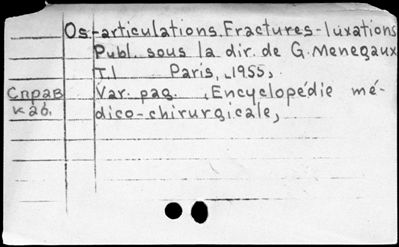 Os-articulations. Fractures-luxations
Publ. sous la dir. de G. Menegaux
T.I Paris, 1955,
Справ Var. pag. , Encyclopédie mé-
каб. dico-chirurgicale,